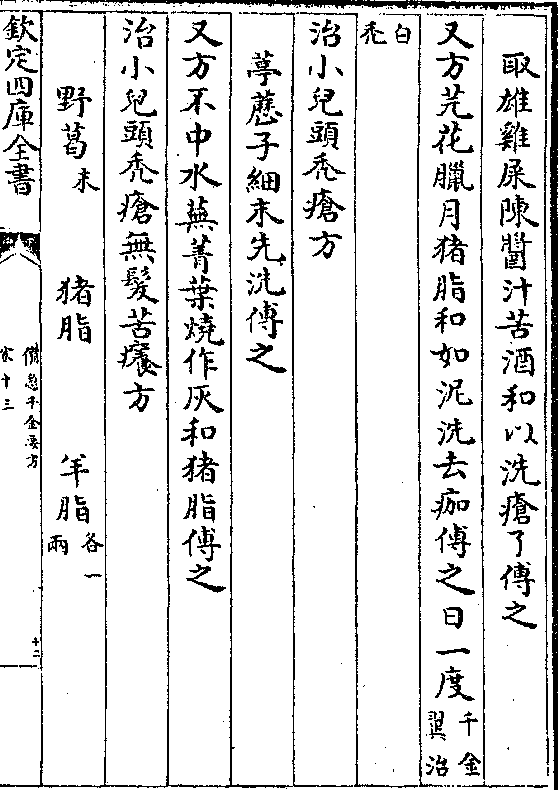 取雄雞屎陳醬汁苦酒和以洗瘡了傅之
又方芫花臘月猪脂和如泥洗去痂傅之日一度千金翼治
白秃
治小兒頭秃瘡方
葶藶子細末先洗傅之
又方不中水蕪菁葉燒作灰和猪脂傅之
治小兒頭秃瘡無髮苦癢方
野葛末 猪脂 羊脂各一兩
欽定四庫全書
備急千金要方
卷十三
十二